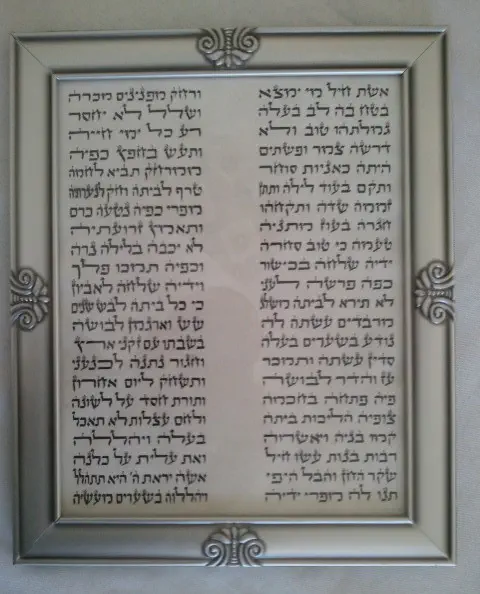 אשת חיל מי ימצא ורחק מפנינים מכרה
בטח בה לב בעלה ושלל לא יחסר
גמולתהו טוב ולא רע כל ימי חייה
דרשה צמר ופשתים ותעש בחפץ כפיה
היתה כאניות סוחר ממרחק תביא לחמה
ותקם בעוד לילה ותתן טרף לביתה וחק לנערותיה
זממה שדה ותקחהו מפרי כפיה נטעה כרם
חגרה בעוז מתניה ותאמץ זרועתיה
טעמה כי טוב סחרה לא יכבה בלילה נרה
ידיה שלחה בכישור וכפיה תמכו פלך
כפה פרשה לעני וידיה שלחה לאביון
לא תירא לביתה משלג כי כל ביתה לבש שנים
מרבדים עשתה לה שש וארגמן לבושה
נודע בשערים בעלה בשבתו עם זקני ארץ
סדין עשתה ותמכר וחגור נתנה לכנעני
עז והדר לבושה ותשחק ליום אחרון
פיה פתחה בחכמה ותורת חסד על לשונה
צופיה הליכות ביתה ולחם עצלות לא תאכל
קמו בניה ויאשרוה בעלה ויהללה
רבות בנות עשו חיל ואת עלית על כלנה
שקר החן והבל היפי אשה יראת ה' היא תתהלל
תנו לה מפרי ידיה ויהללוה בשערים מעשיה